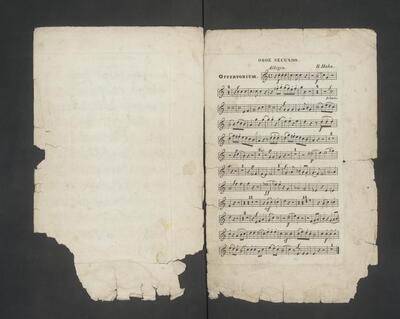 OBOE SECUNDO.
Allegro. B. Hahn.
OFFERTORIUM.